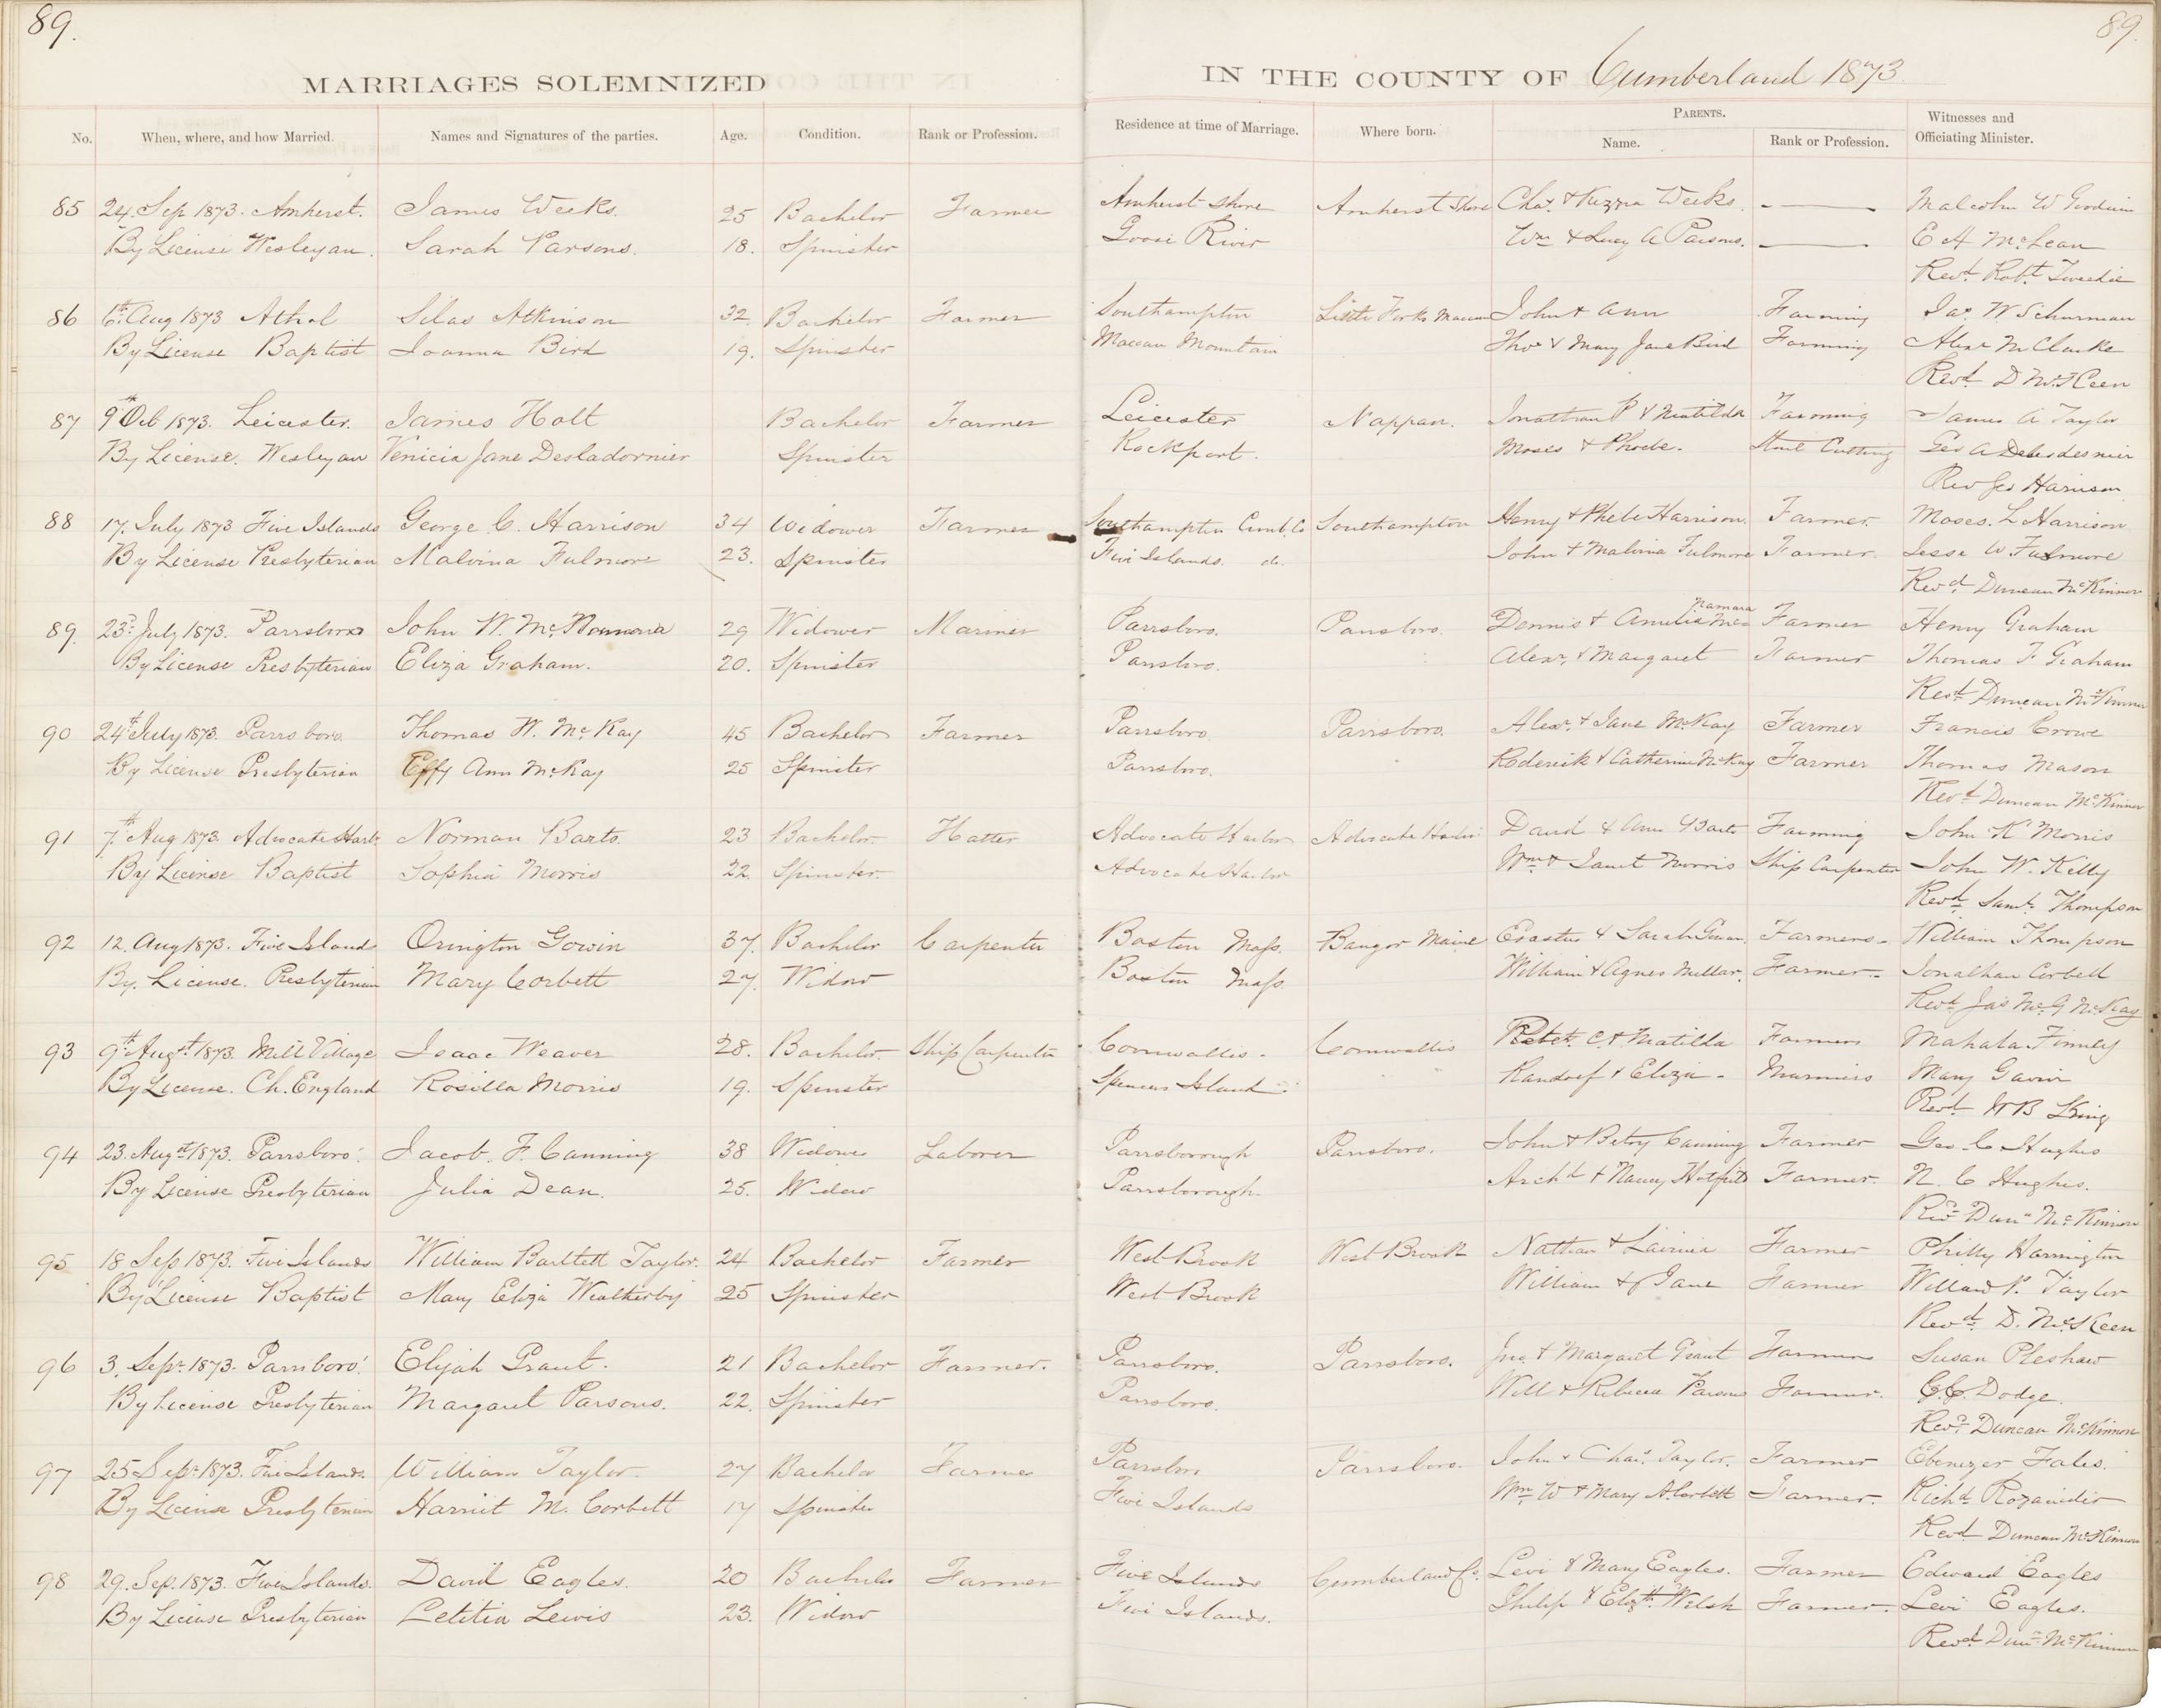 89.
89.
MARRIAGES SOLEMNIZED IN THE COUNTY OF Cumberland 1873
No. When, where, and how Married. Names and Signatures of the parties. Age. Condition. Rank or Profession. Residence at time of Marriage. Where born. PARENTS. Name. Rank or Profession. Witnesses and Officiating Minister.
85 24. Sep 1873. Amherst. James Weeks. 25 Bachelor Farmer Amherst Shore Amherst Shore Chas. & Kezzia Weeks. Malcolm W Goodwin
By License Wesleyan. Sarah Parsons. 18. Spinister Goose River Wm & Lucy A Parsons. E A McLean
Revd. Robt. Tweedie
86 6th Aug 1873 Athol Silas Atkinson 32 Bachelor Farmer Southampton Little Forks Maccan John & Ann Farming Jas. W Schurman
By License Baptist Joanna Bird 19. Spinister Maccan Mountain Thos & Mary Jane Bird Farming Alexr McClarke
Revd. D McKeen
87 9th Oct 1873. Leicester. James Holt Bachelor Farmer Leicester Nappan. Jonathan P & Matilda Farming James A Taylor
By License. Wesleyan Venicia Jane Desladornier Spinister Rockport. Moses & Phoebe. Stone Cutting Geo A
Rev Geo Harrison
88 17. July 1873 Five Islands George C. Harrison 34 Widower Farmer Southampton Cumb. Co Southampton Henry & Phebe Harrison. Farmer. Moses. L Harrison
By License Presbyterian Malvina Fulmore 23. Spinister Five Islands. do. John & Malvina Fulmore Farmer. Jesse W Fulmore
Revd. Duncan McKinnon
89. 23d July 1873. Parrsboro John W. McNamara 29 Widower Mariner Parrsboro. Parrsboro. Dennis & Amelia McNamara Farmer Henry Graham
By License Presbyterian Eliza Graham. 20. Spinister Parrsboro. Alexr. & Margaret Farmer Thomas F Graham
Revd. Duncan McKinnon
90 24th July 1873. Parrsboro. Thomas W. McKay 45 Bachelor Farmer Parrsboro. Parrsboro. Alexr. & Jane McKay Farmer Francis Crowe
By License Presbyterian Effy Ann McKay 25 Spinister Parrsboro. Roderick & Catherine McKay Farmer Thomas Mason
Revd. Duncan McKinnon
91 7th Aug 1873. Advocate Harb. Norman Barts. 23 Bachelor. Hatter Advocate Harbor Advocate Harbor David & Ann Barts Farming John K Morris
By License Baptist Sophia Morris 22. Spinster. Advocate Harbor Wm & Janet Morris Ship Carpenter John W. Kelly
Revd. Saml. Thompson
92 12. Aug 1873. Five Islands Orington Gowin 37. Bachelor Carpenter Boston Mass. Bangor Maine Erastus & Sarah Gowin. Farmers. William Thompson
By. License. Presbyterian Mary Corbett 27. Widow Boston Mass. William & Agnes Millar. Farmer. Jonathan Corbett
Revd. Jas McG McKay
93 9th Augst. 1873. Mill Village Isaac Weaver 28. Bachelor. Ship Carpenter Cornwallis. Cornwallis Robt. C. & Matilda Farmers Mahala Finney
By License. Ch. England Rosilla Morris 19. Spinster Spencers Island. Randorf & Eliza. Marriners Mary Gavin
Revd. W B King
94 23. Augst. 1873. Parrsboro'. Jacob. F. Canning 38 Widower Laborer Parrsborough Parrsboro. John & Betsy Canning Farmer Geo. C Hughes
By License Presbyterian Julia Dean. 25. Widow Parrsborough. Archd & Nancy Farmer. N. C Hughes.
Revd Dunn McKinnon
95 18 Sep 1873. Five Islands William Bartlett Taylor. 24 Bachelor Farmer West Brook West Brook Nathan & Lavinia Farmer Philly Harrington
By License Baptist Mary Eliza Weatherby 25 Spinister West Brook William & Jane Farmer Willard P. Taylor
Revd. D. McKeen
96 3. Sepr 1873. Parrsboro'. Elijah Grant. 21 Bachelor Farmer. Parrsboro. Parrsboro. Jno. & Margaret Grant Farmers Susan Pleshaw
By License Presbyterian Margaret Parsons. 22. Spinister Parrsboro. Will & Rebecca Parsons Farmer. C.C. Dodge.
Revd. Duncan McKinnon
97 25 Sepr 1873. Five Islands. William Taylor. 27 Bachelor Farmer Parrsboro Parrsboro. John & Chas. Taylor. Farmer Ebenezer Fales.
By License Presbyterian Harriet M. Corbett 17 Spinister Five Islands Wm. W & Mary A. Corbett Farmer. Richd.
Revd. Duncan McKinnon
98 29. Sep. 1873. Five Islands. David Eagles. 20 Bachelor Farmer Five Islands Cumberland Co. Levi & Mary Eagles. Farmer Edward Eagles
By License Presbyterian Letitia Lewis 23. Widow Five Islands. Philip & Elizth. Welsh Farmer. Levi Eagles.
Revd. Dunn. McKinnon